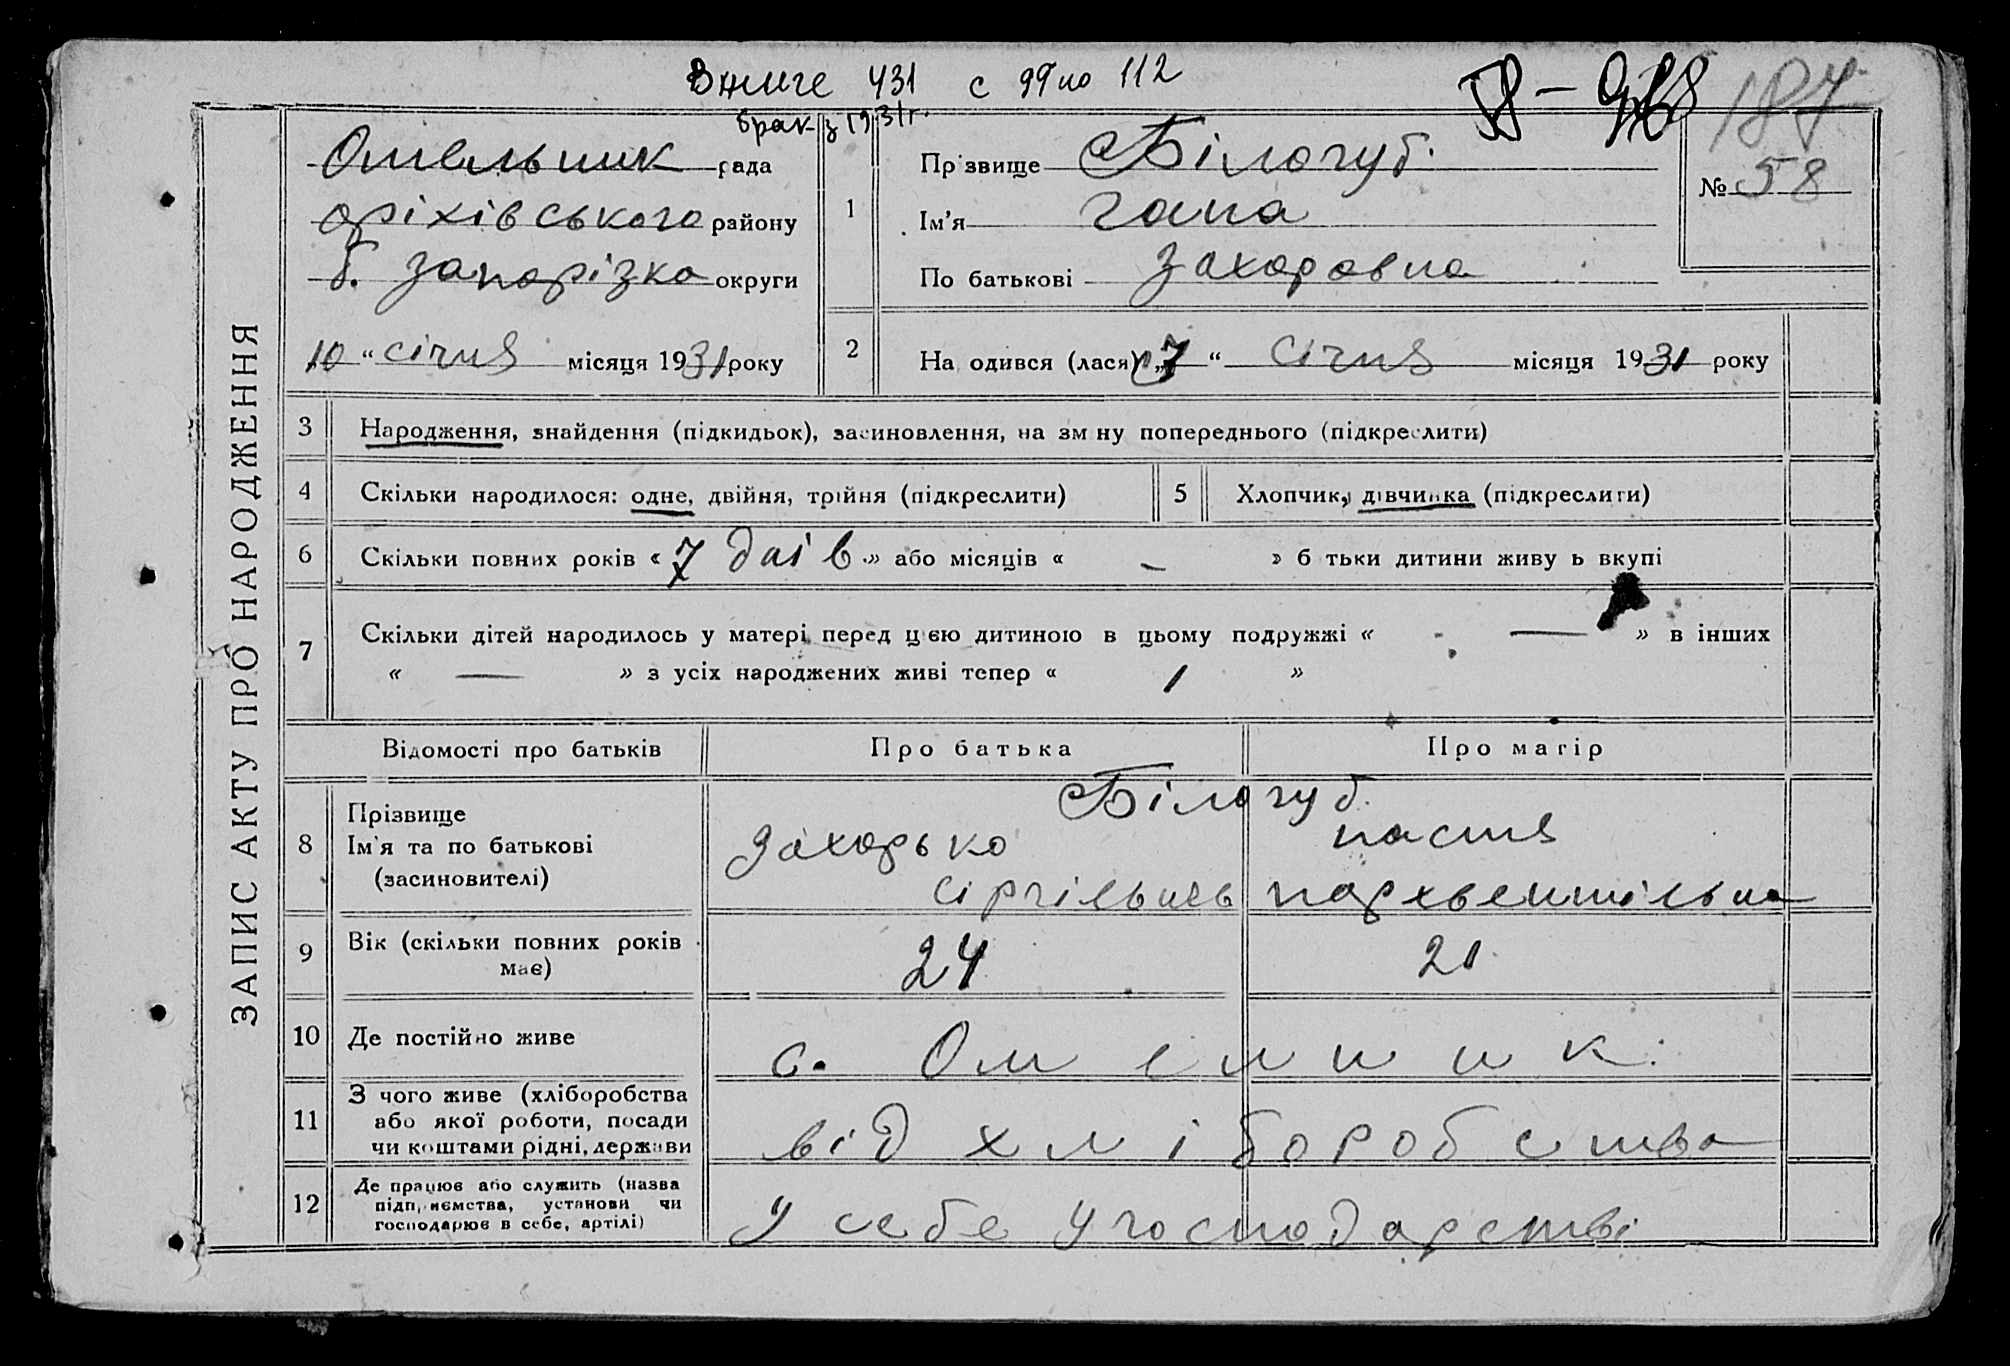 В книге 431 с 99 по 112
брак з 1931г.
187
ЗАПИС АКТУ ПРО НАРОДЖЕННЯ
Омельник рада
оріхівського району
б. запорізка округи
10 “ січня місяця 1931 року
1
Пр звище Білогуб.
Ім’я гапа
По батькові захоровна
№ 58
2
На одився (лася) „7 “ січня місяця 1931 року
3 Народження, знайдення (підкидьок), засиновлення, на зм ну попереднього (підкреслити)
4 Скільки народилося: одне, двійня, трійня (підкреслити)
5 Хлопчик, дівчинка (підкреслити)
6 Скільки повних років « 7 » або місяців « — » б тьки дитини живу ь вкупі
7 Скільки дітей народилось у матері перед цією дитиною в цьому подружжі « — » в інших
« — » з усіх народжених живі тепер « 1 »
Відомості про батьків Про батька Про матір
8 Прізвище
Ім’я та по батькові
(засиновителі)
Білогуб.
Захорько настя
9 Вік (скільки повних років має) 24 21
10 Де постійно живе с. Омелник.
11 З чого живе (хліборобства
або якої роботи, посади
чи коштами рідні, держави
від хліборобства
12 Де працює або служить (назва
підприємства, установи чи
господарює в себе, артілі)
У себе у господарстві